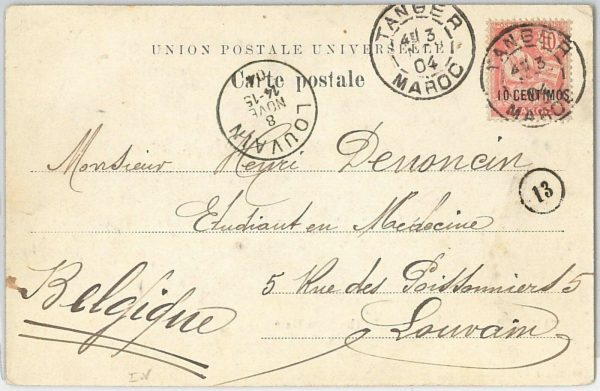 UNION POSTALE UNIVERSELLE
Carte postale
TANGER
4E 3
04
MAROC
TANGER
4E 3
MAROC
10
10 CENTIMOS
LOUVAIN
14-15
8
NOVE
04
13
Monsieur Henri Denoncin
Etudiant en Médecine
5 Rue des Poissonniers 5
Louvain
Belgique